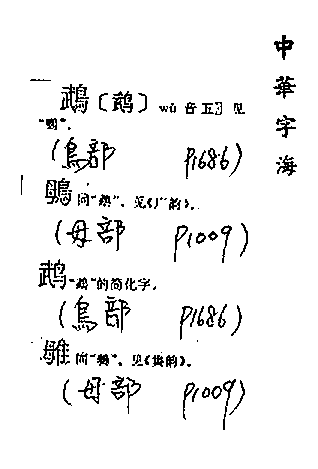 中華字海
鵡〔鹉〕wǔ 音五 见
"鹦".
(鳥部 P1686)
同"鵡". 见《广韵》.
(毋部 P1009)
鹉"鵡"的简化字.
(鳥部 P1686)
同"鹉". 见《集韵》.
(毋部 P1009)